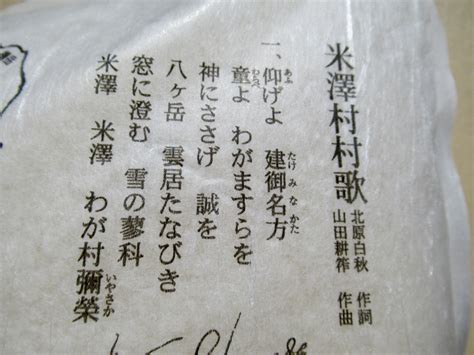 米澤村村歌
北原白秋 作詞
山田耕筰 作曲
一、仰げよ 建御名方
童よ わがますらを
神にささげ 誠を
八ヶ岳 雲居たなびき
窓に澄む 雪の蓼科
米澤 米澤 わが村彌榮